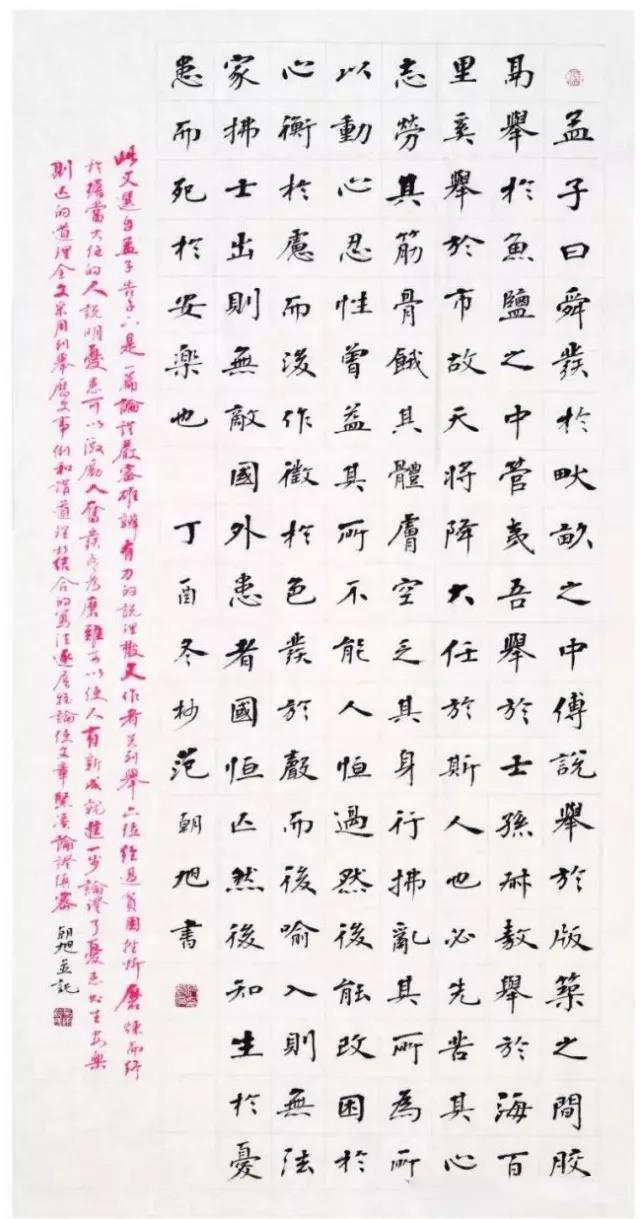 孟子曰舜發於畎畝之中傅說舉於版築之間膠
鬲舉於魚鹽之中管夷吾舉於士孫叔敖舉於海百
里奚舉於市故天將降大任於斯人也必先苦其心
志勞其筋骨餓其體膚空乏其身行拂亂其所為所
以動心忍性曾益其所不能人恒過然後能改困於
心衡於慮而後作徵於色發於聲而後喻入則無法
家拂士出則無敵國外患者國恒亡然後知生於憂
患而死於安樂也 丁酉冬杪范朝旭書
此文選自孟子告子下是一篇論證嚴密雄辯有力的說理散文作者先列舉六位經過貧困挫折磨煉而終
於擔當大任的人說明憂患可以激勵人奮發有為磨難可以使人有新成就進一步論證了憂患則生安樂
則亡的道理全文采用列舉歷史事例和講道理相結合的寫法逐層推論使文章緊湊論證縝密 朝旭並記